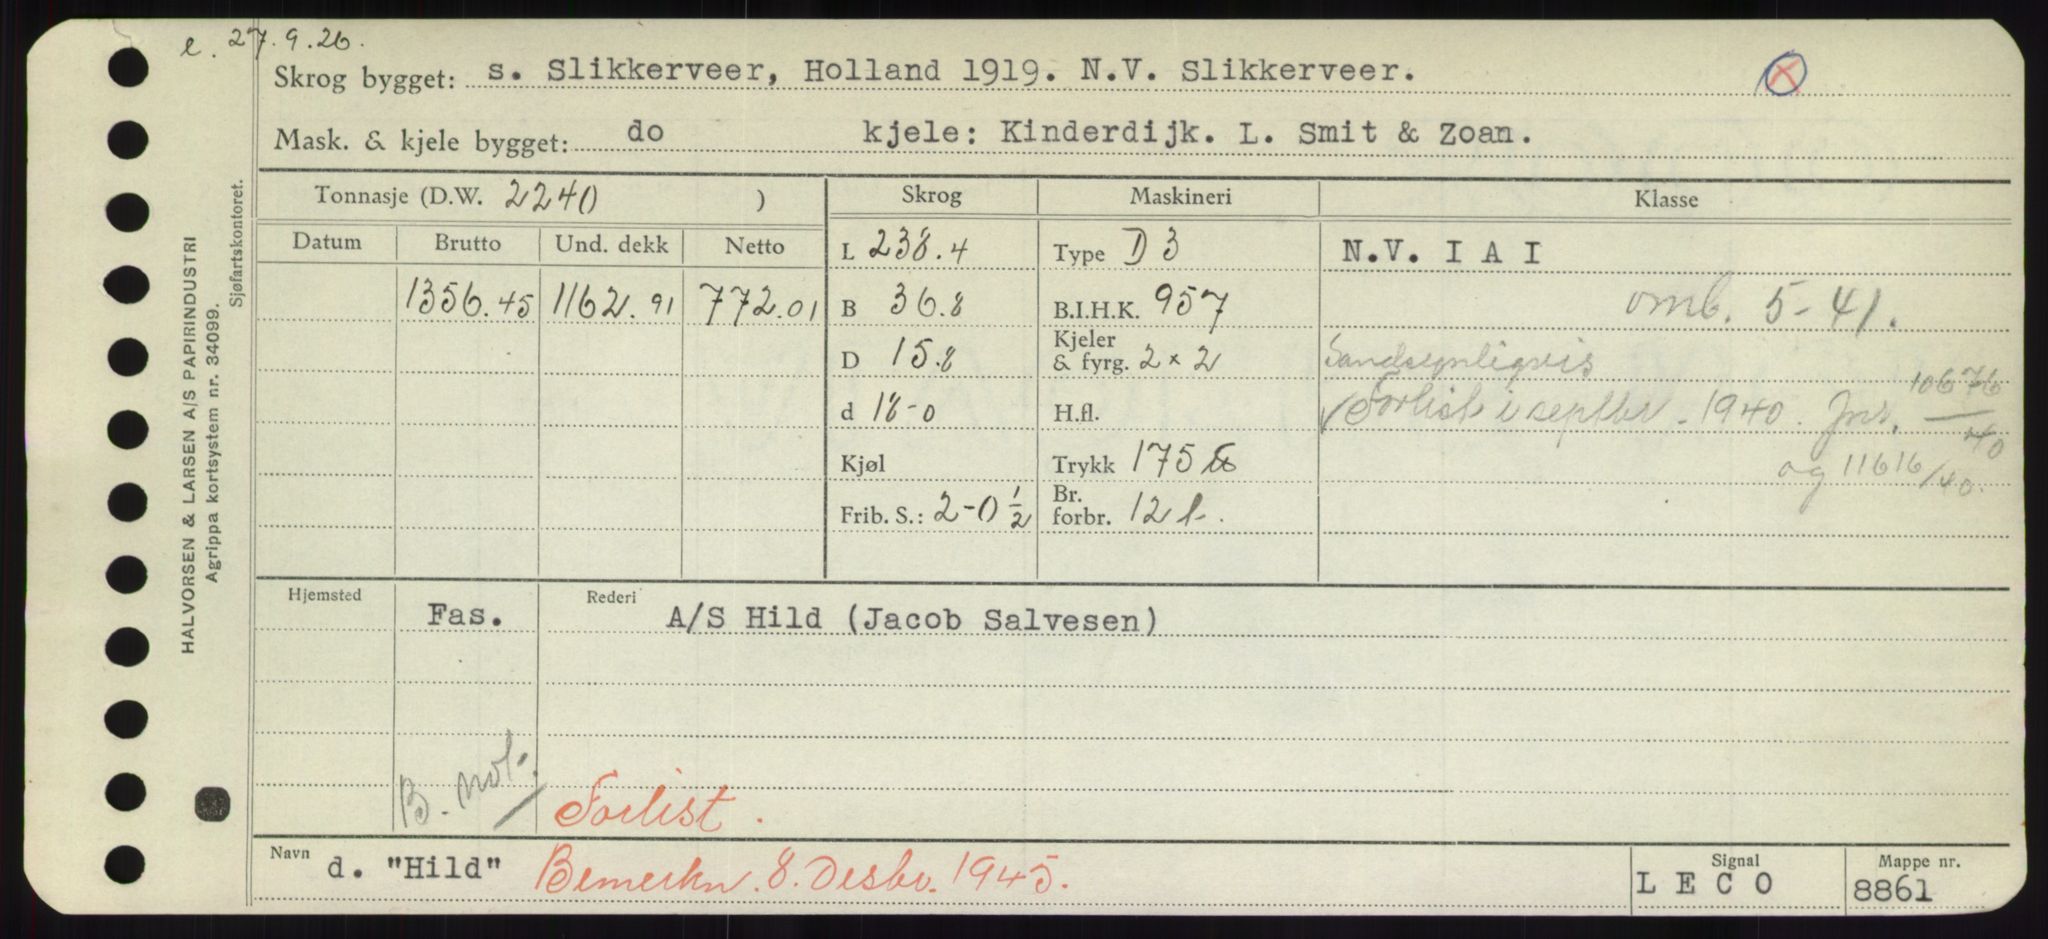 e. 27.9.26.
Skrog bygget: s. Slikkerveer, Holland 1919. N.V. Slikkerveer.
Mask. & kjele bygget: do kjele: Kinderdijk. L. Smit & Zoan.
Tonnasje (D.W. 2240 ) Skrog Maskineri Klasse
Datum Brutto Und. dekk Netto L 238.4 Type D 3 N.V. I A I
1356.45 1162.91 772.01 B 36.8 B.I.H.K. 957 omb. 5-41.
D 15.8 Kjeler & fyrg. 2 x 2 Sandsynligvis
d 18-0 H.fl. Forlist i septbr. 1940. Jnr. 10676/40
Kjøl Trykk 175 og 11616/40.
Frib. S.: 2-0 ½ Br. forbr. 12 t.
Hjemsted Fas. Rederi A/S Hild (Jacob Salvesen)
B. not.
Forlist.
Navn d. "Hild" Bemerkn. 8. Desbr. 1945. Signal L E C O Mappe nr. 8861
HALVORSEN & LARSEN A/S PAPIRINDUSTRI
Agrippa kortsystem nr. 34099.
Sjøfartskontoret.